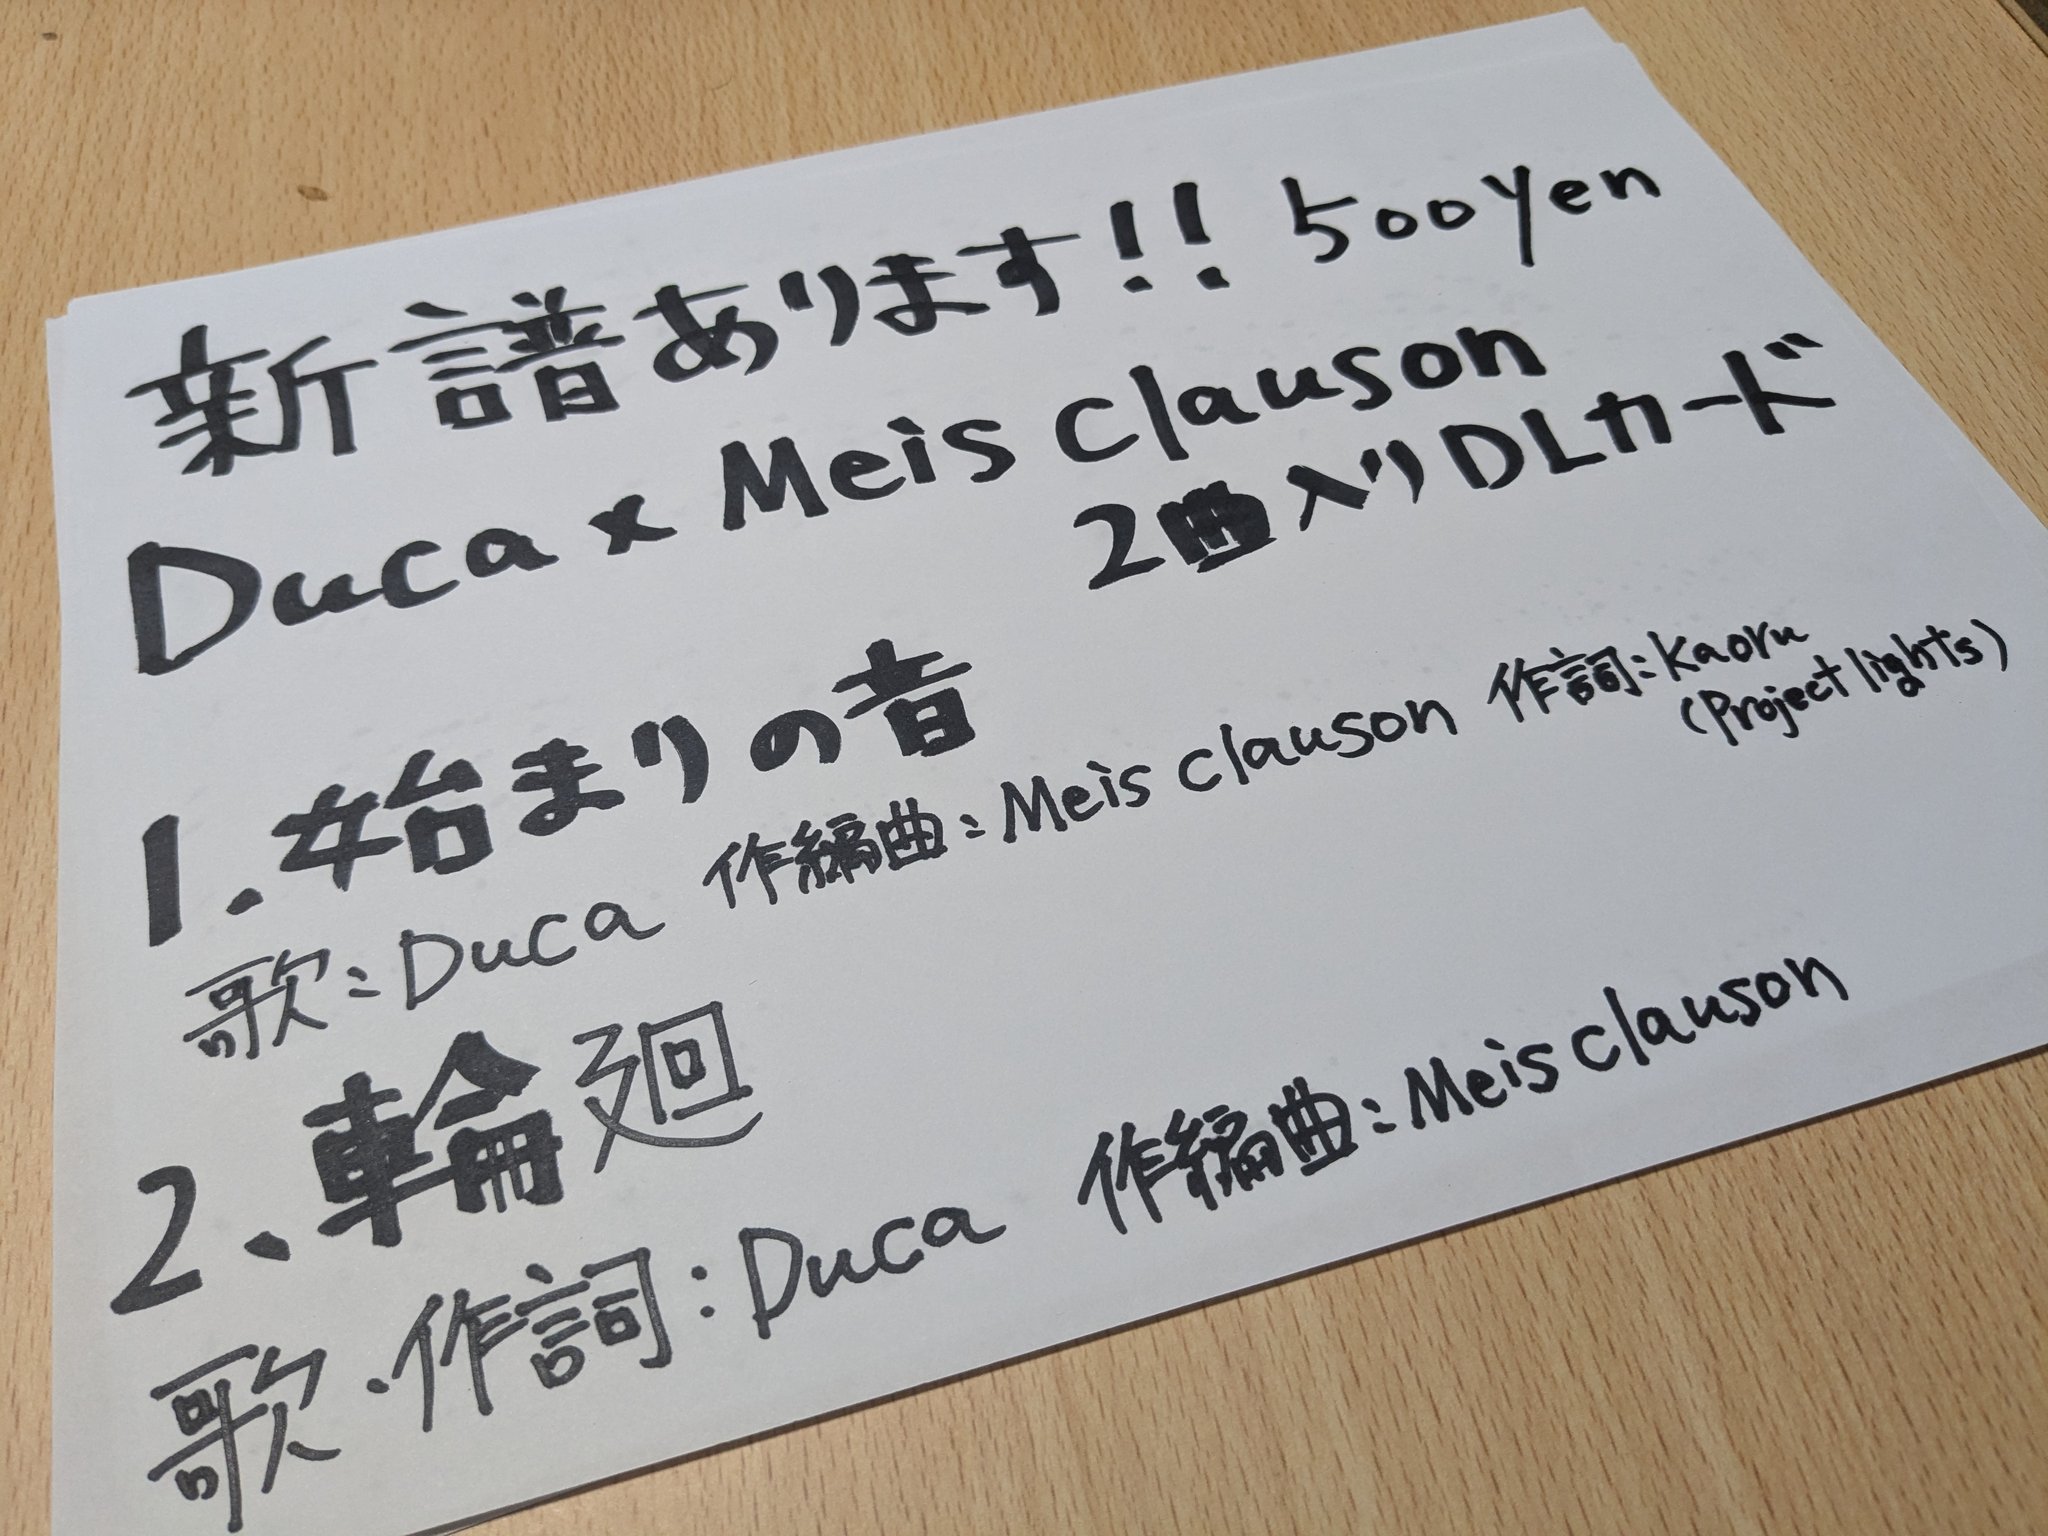 新譜あります!! 500yen
Duca x Meis Clauson
2曲入りDLカード
1.始まりの音
歌:Duca 作編曲:Meis Clauson 作詞:Kaoru
(Project lights)
2、輪廻
歌・作詞:Duca 作編曲:Meis Clauson